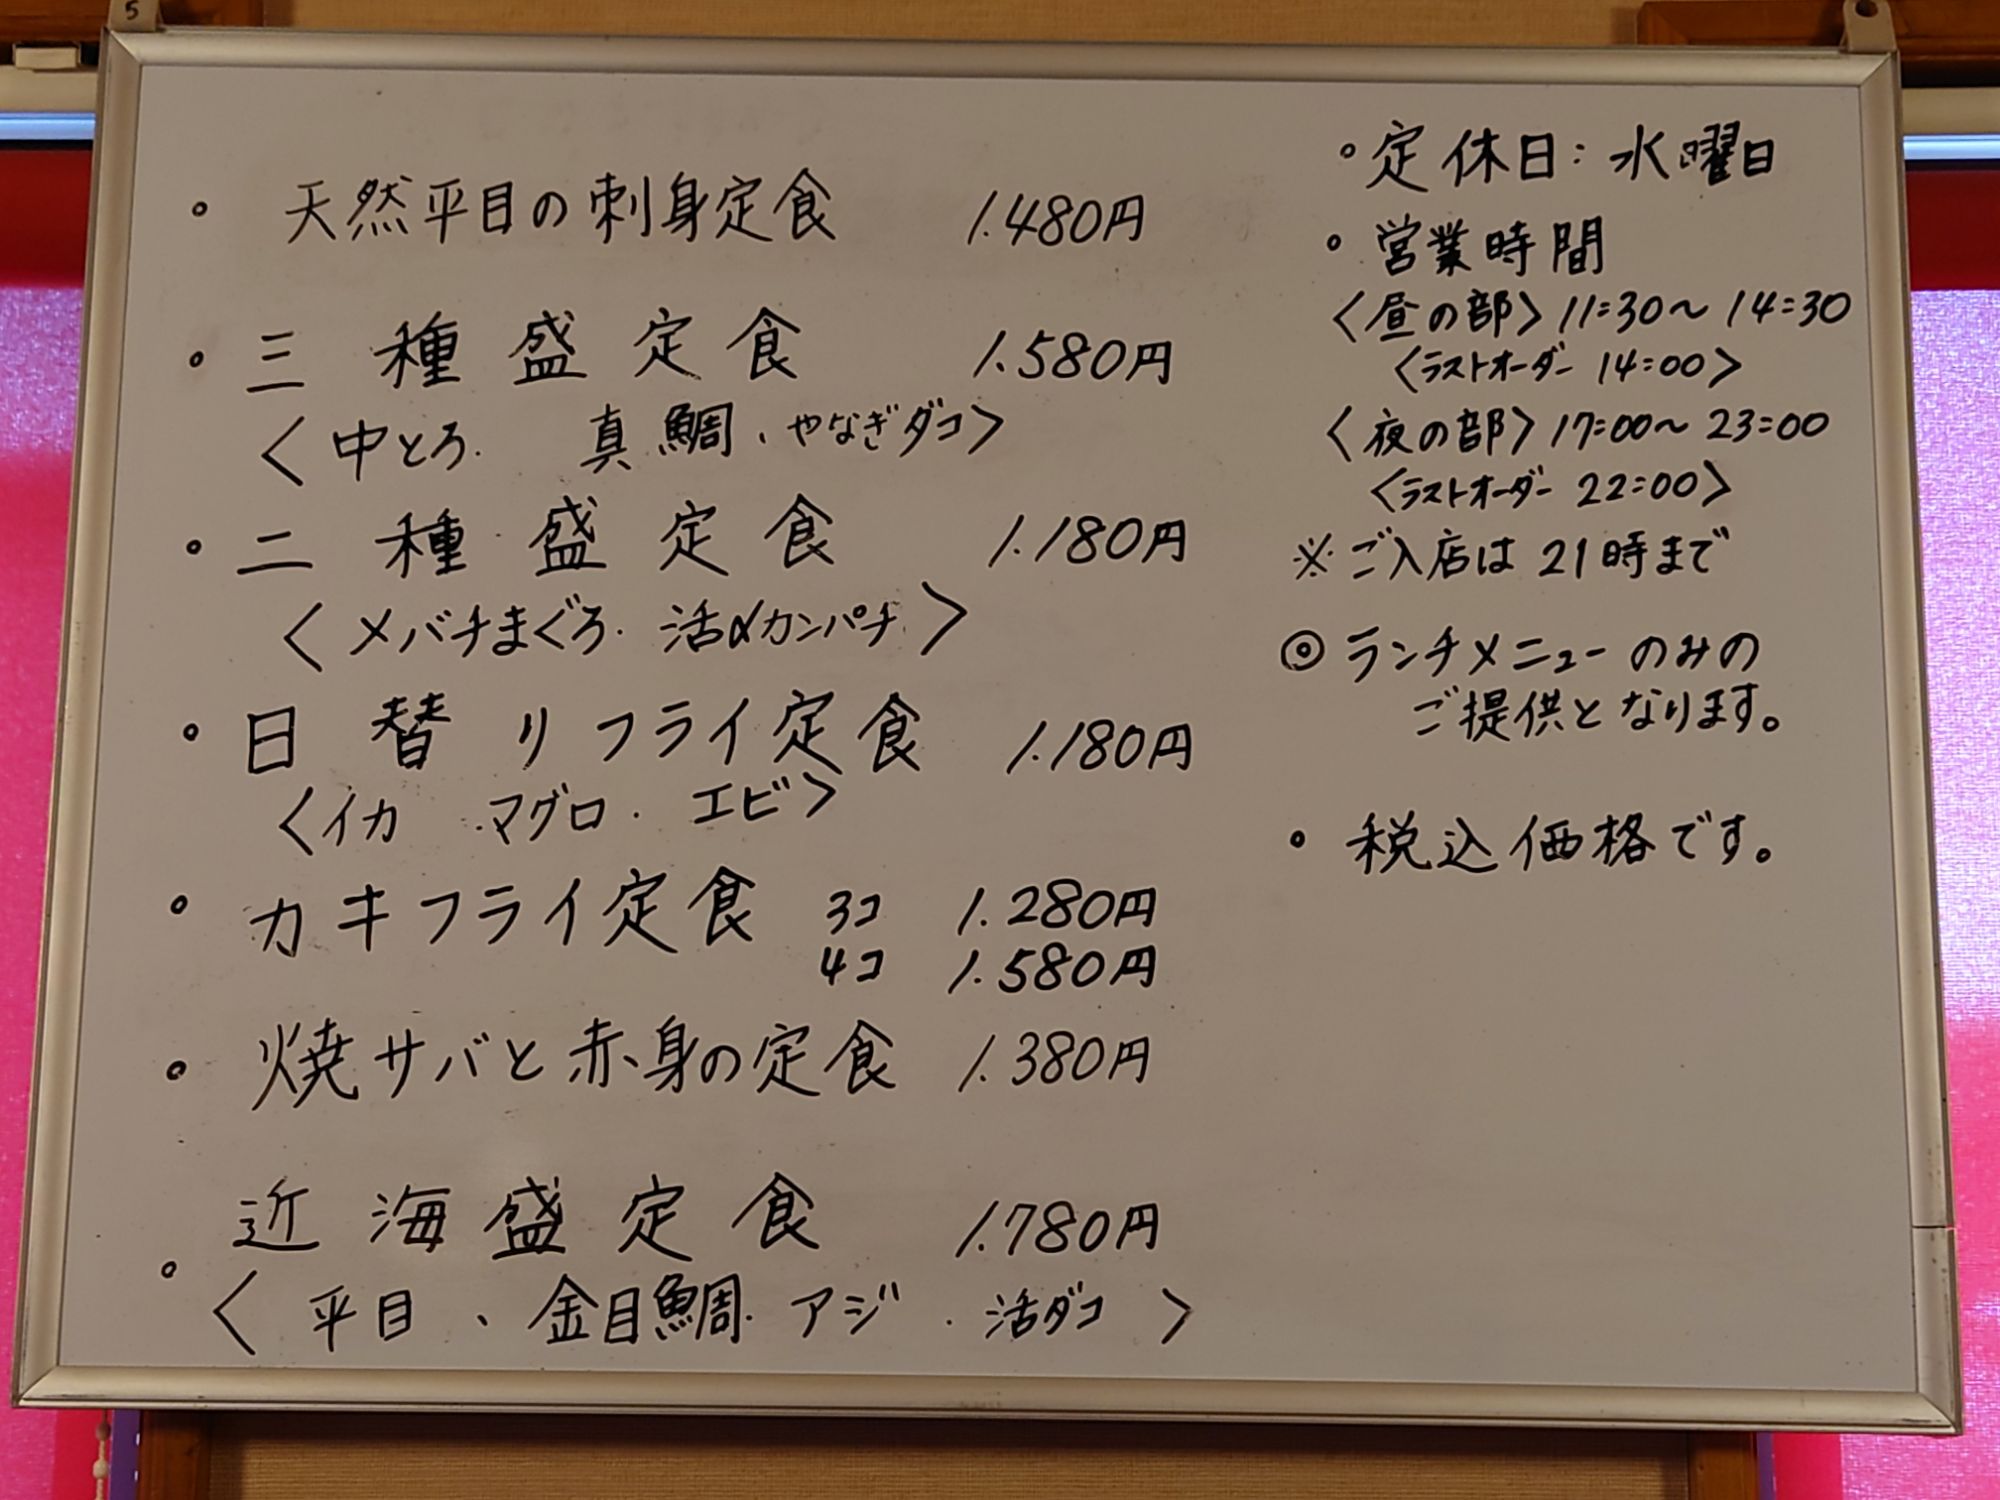 5
。天然平目の刺身定食 1.480円
。三種盛定食 1.580円
〈中とろ. 真鯛、やなぎダコ〉
。二種盛定食 1.180円
〈メバチまぐろ. 活〆カンパチ.〉
。日替りフライ定食 1.180円
〈イカ .マグロ. エビ〉
。カキフライ定食 3コ 1.280円
4コ 1.580円
。焼サバと赤身の定食 1.380円
。近海盛定食 1.780円
〈平目、金目鯛.アジ.活ダコ〉
。定休日:水曜日
。営業時間
〈昼の部〉11:30〜14:30
〈ラストオーダー 14:00〉
〈夜の部〉17:00〜23:00
〈ラストオーダー 22:00〉
※ご入店は21時まで
◎ランチメニューのみの
ご提供となります。
。税込価格です。